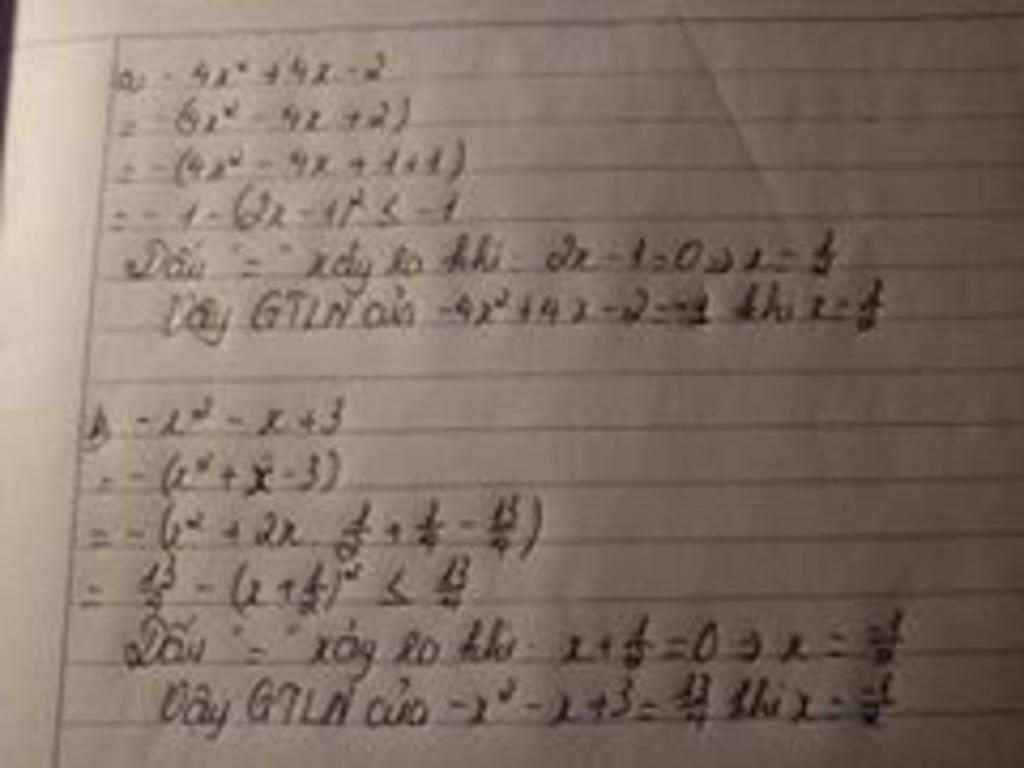 a, -4x² + 4x - 2
= -(4x² - 4x + 2)
= -(4x² - 4x + 1 + 1)
= -1 - (2x - 1)² ≤ -1
Dấu "=" xảy ra khi 2x - 1 = 0 ⇒ x = 1/2
Vậy GTLN của -4x² + 4x - 2 = -1 khi x = 1/2
b, -x² - x + 3
= -(x² + x - 3)
= -(x² + 2x 1/2 + 1/4 - 13/4)
= 13/4 - (x + 1/2)² ≤ 13/4
Dấu "=" xảy ra khi x + 1/2 = 0 ⇒ x = -1/2
Vậy GTLN của -x² - x + 3 = 13/4 khi x = -1/2